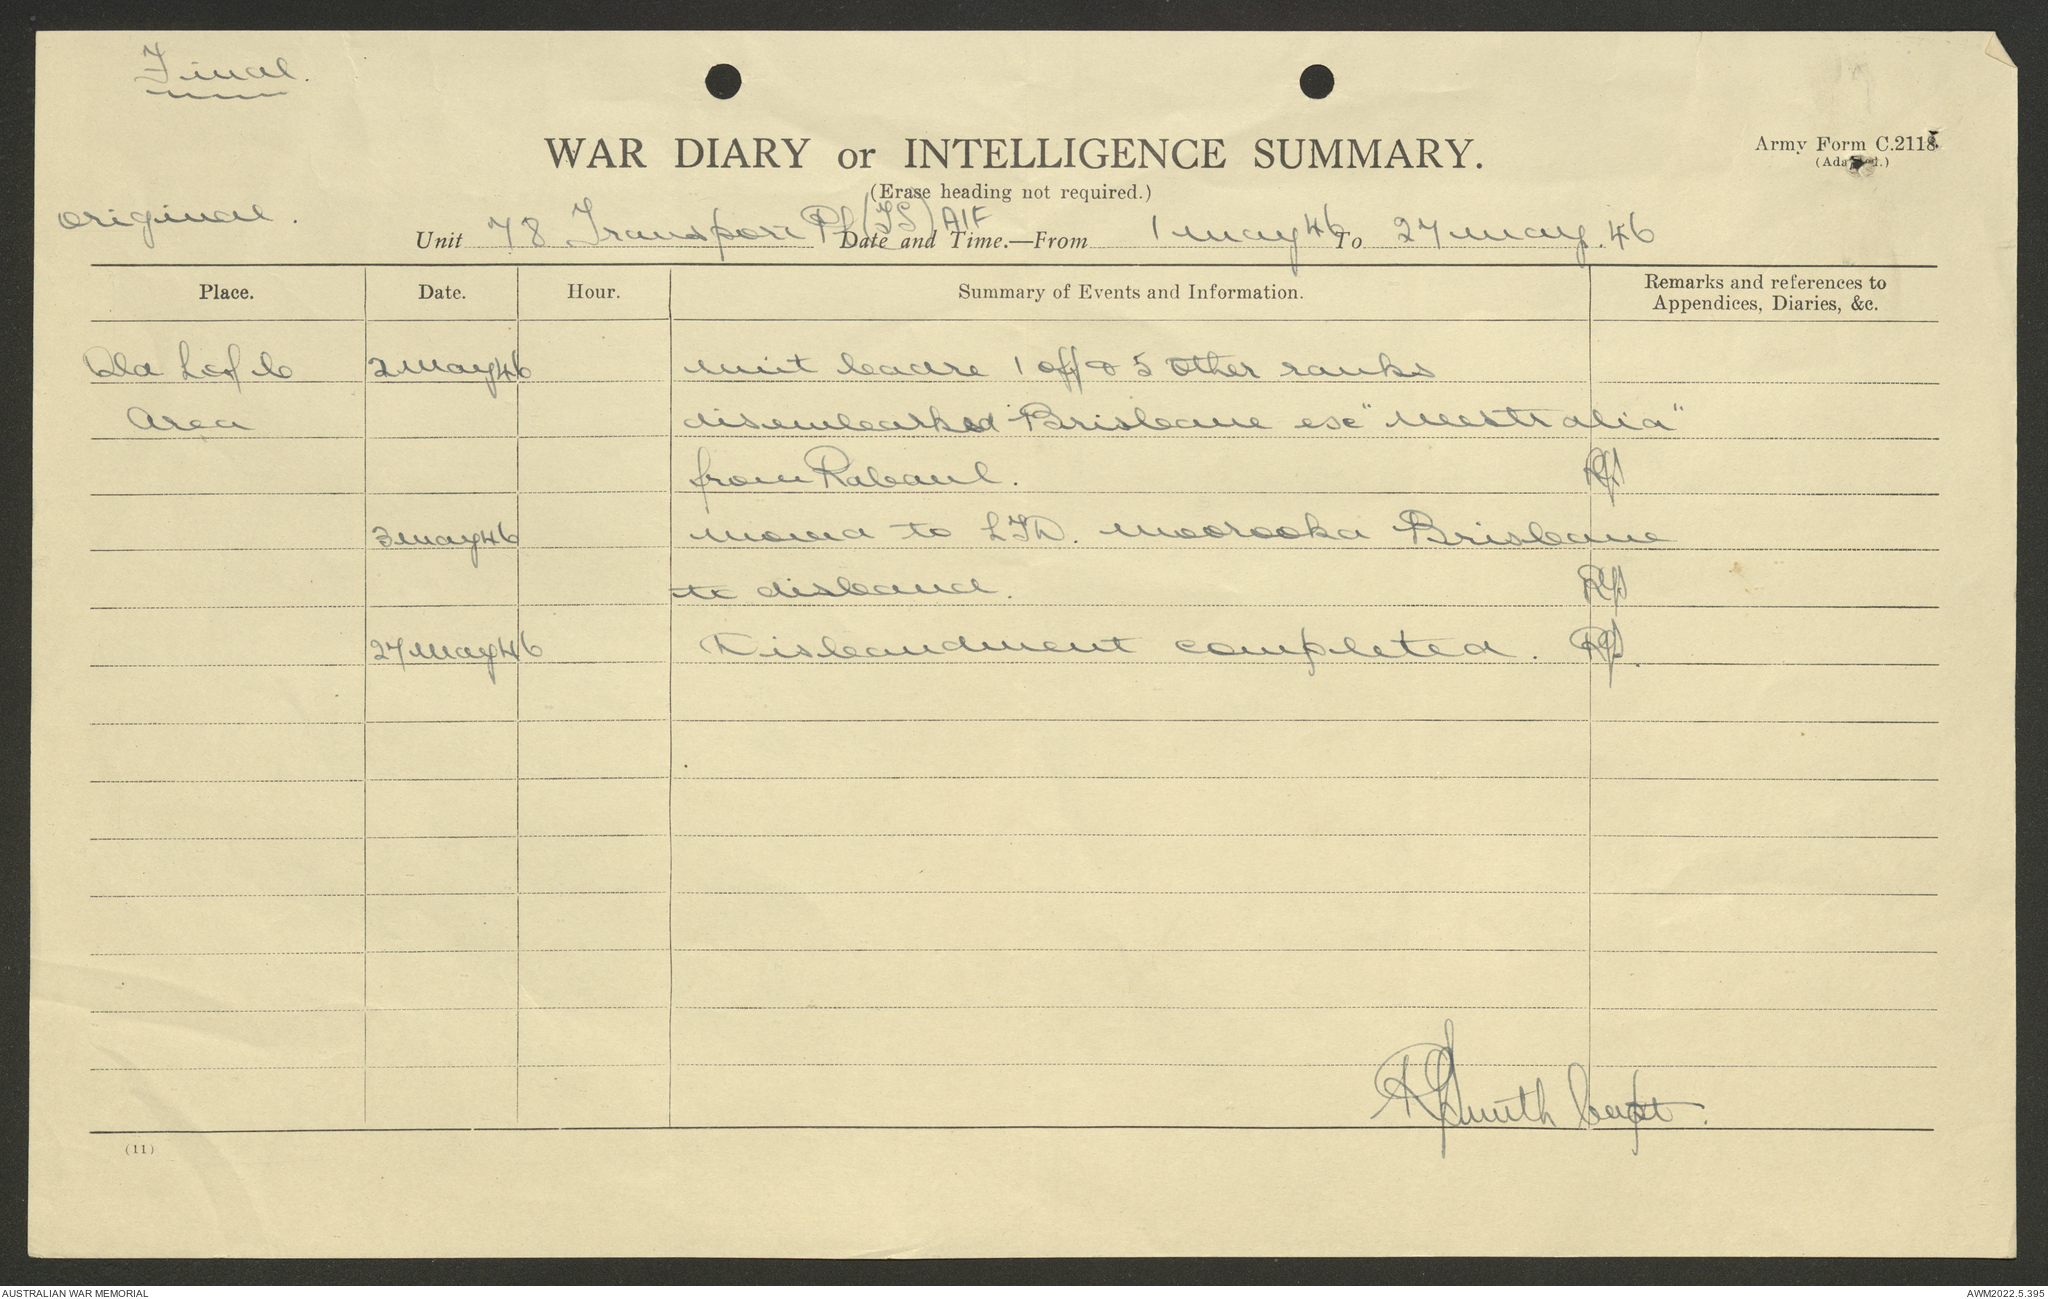 Final.
WAR DIARY or INTELLIGENCE SUMMARY.
Army Form C.2118
(Adapted.)
(Erase heading not required.)
Original.
Unit 78 Transport Pl (TS) AIF Date and Time.—From 1 May 46 To 27 May. 46
Place. Date. Hour. Summary of Events and Information. Remarks and references to
Appendices, Diaries, &c.
Qld L of C 2 May 46 Unit cadre 1 off & 5 other ranks
Area disembarked Brisbane ex "Westralia"
from Rabaul. RGS
3 May 46 Moved to LTD. Moorooka Brisbane
to disband. RGS
27 May 46 Disbandment completed. RGS.
RGSmith Capt.
(11)
AUSTRALIAN WAR MEMORIAL AWM2022.5.395